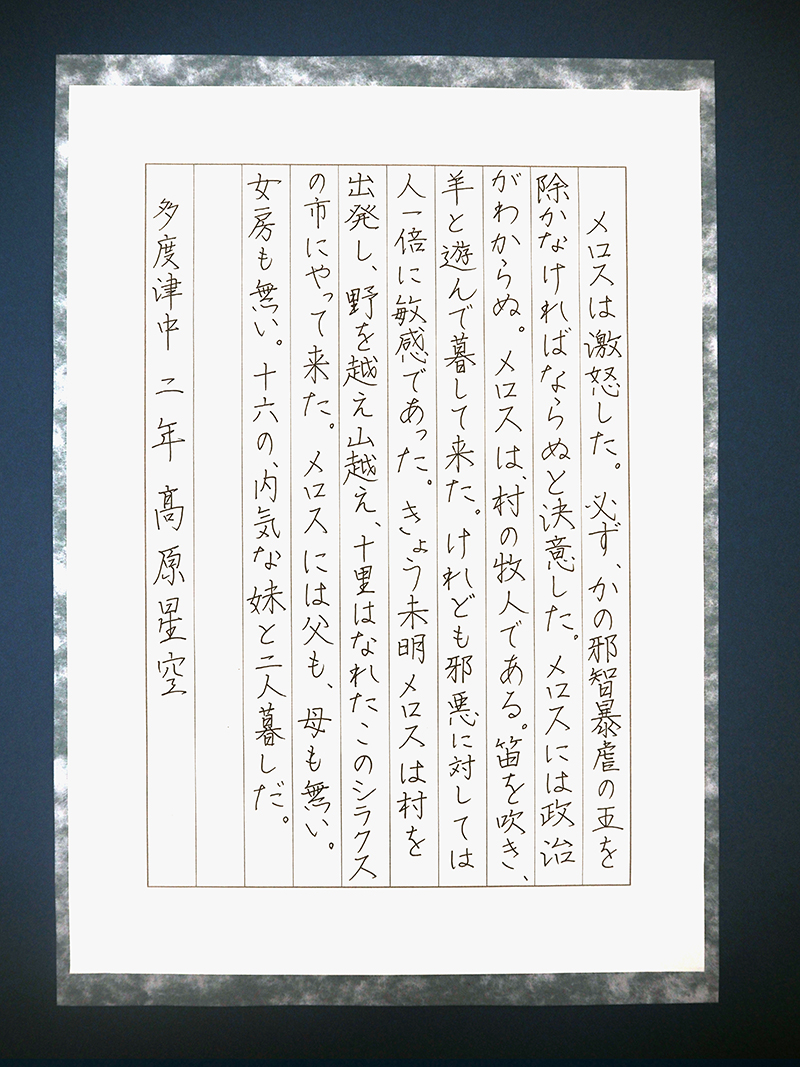 メロスは激怒した。必ず、かの邪智暴虐の王を
除かなければならぬと決意した。メロスには政治
がわからぬ。メロスは、村の牧人である。笛を吹き、
羊と遊んで暮して来た。けれども邪悪に対しては
人一倍に敏感であった。きょう未明メロスは村を
出発し、野を越え山越え、十里はなれたこのシラクス
の市にやって来た。メロスには父も、母も無い。
女房も無い。十六の、内気な妹と二人暮しだ。
多度津中 二年 高原星空